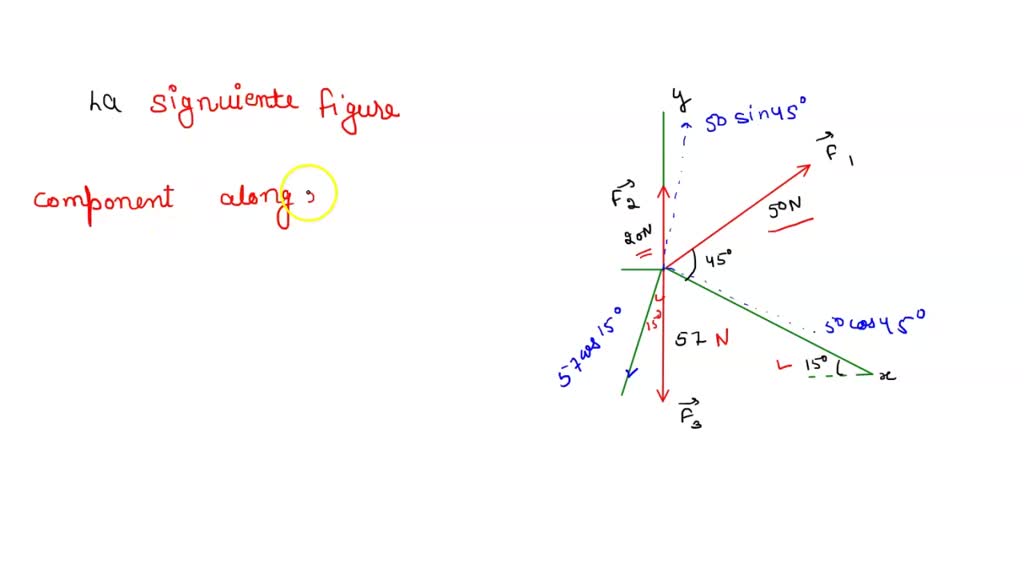 La signuiente figure
component along,
y
50 sin45°
F⃗1
F⃗2
50N
20N
45°
50cos45°
57cos15°
15°
57 N
15°
x
F⃗3